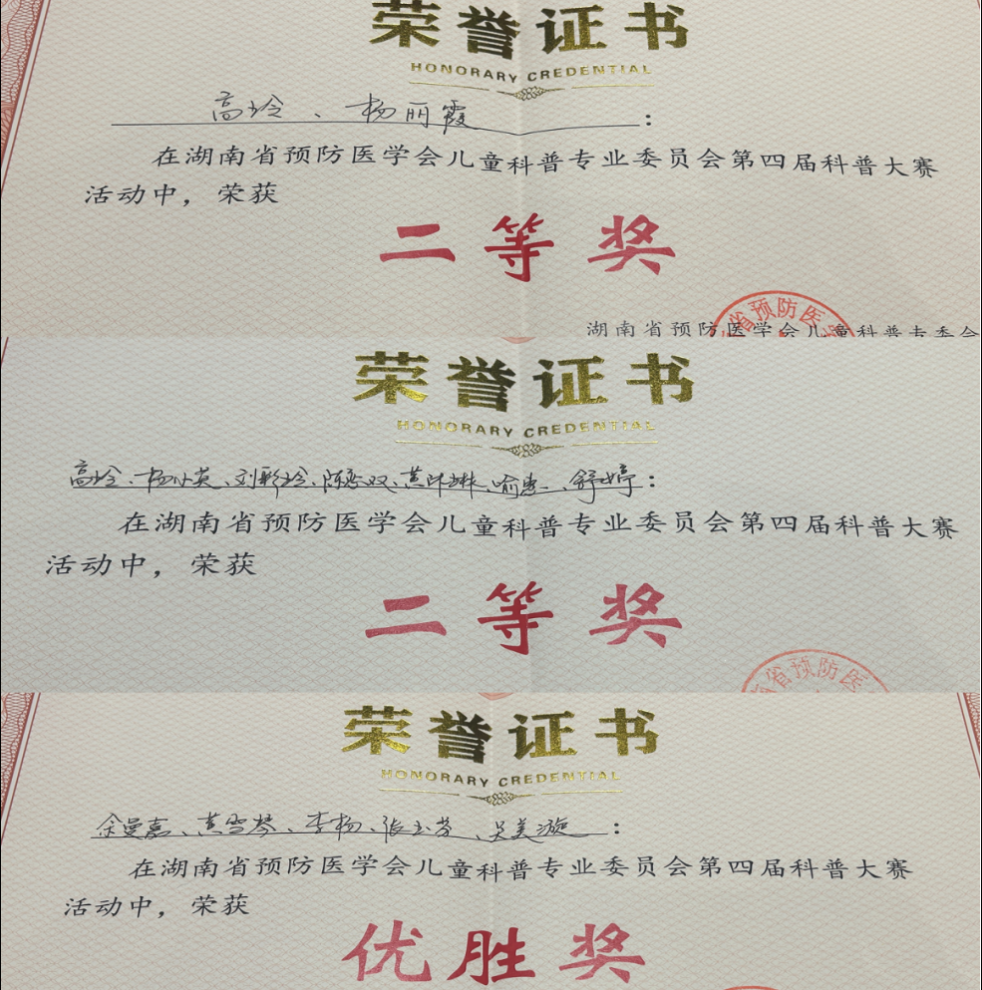 荣誉证书
HONORARY CREDENTIAL
高玲、杨丽霞：
在湖南省预防医学会儿童科普专业委员会第四届科普大赛
活动中，荣获
二等奖
省预防医
湖南省预防医学会儿童科普专委会
荣誉证书
HONORARY CREDENTIAL
高玲、杨小英、刘彩玲、陈香双、黄咪琳、喻惠、舒婷：
在湖南省预防医学会儿童科普专业委员会第四届科普大赛
活动中，荣获
二等奖
南省预防医
荣誉证书
HONORARY CREDENTIAL
余曼嘉、黄雪琴、李杨、张玉芬、吴美漩：
在湖南省预防医学会儿童科普专业委员会第四届科普大赛
活动中，荣获
优胜奖